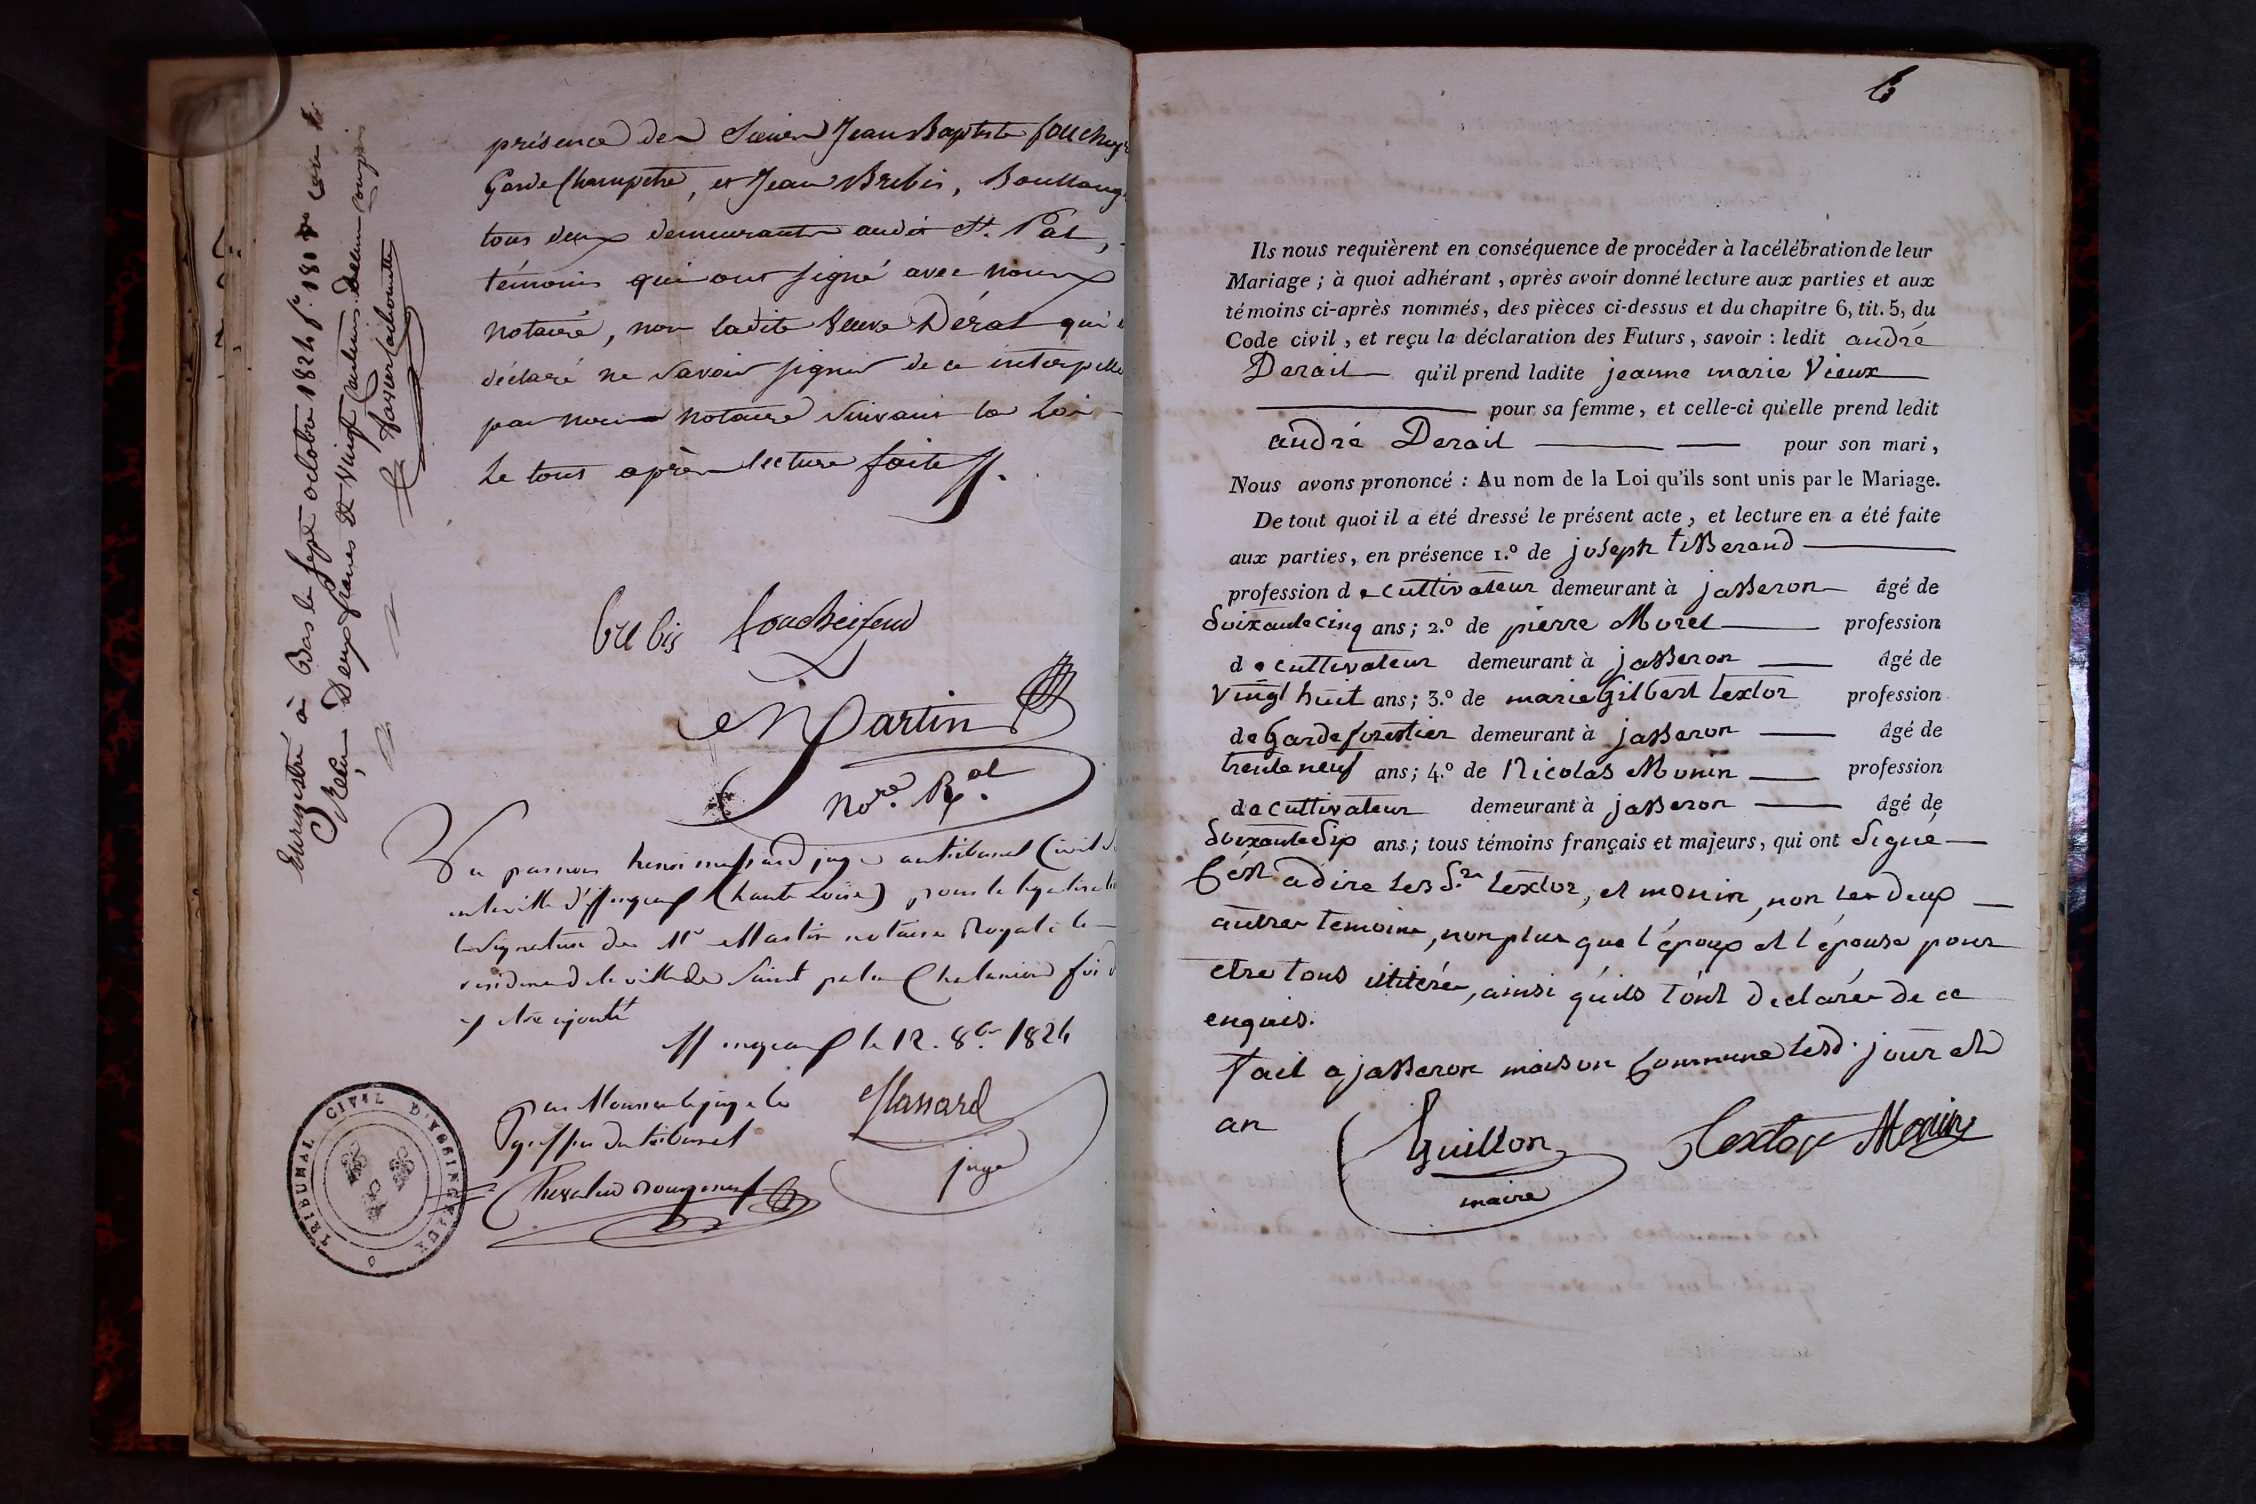 présence des Sieurs Jean Baptiste fouchey
Garde Champetre, et Jean Brebis, Boullang
tous deux demeurants audit St. Pal,
témoins qui ont signé avec nous
notaire, non ladite Veuve Dérail qui a
déclaré ne savoir signer de ce interpellé
par nous notaire suivant la Loi
Le tous après lecture faite
brebis
Martin
Nore. Ral.
Enregistré à Bas le sept octobre 1824 fo. 180
Reçu Deux francs et vingt centimes Decime compris
Vu par nous henri massard juge au tribunal Civil
(haute Loire) pour la
la signature de Mr Martin notaire Royal à la
résidence de la ville de Saint pal en Chalancon foi
y etre ajouté
le 12. 8bre 1824
par Monsieur le juge le
greffier du tribunal
Massard
juge
TRIBUNAL CIVIL D'YSSINGEAUX
6
Ils nous requièrent en conséquence de procéder à la célébration de leur
Mariage ; à quoi adhérant , après avoir donné lecture aux parties et aux
témoins ci-après nommés, des pièces ci-dessus et du chapitre 6, tit. 5, du
Code civil , et reçu la déclaration des Futurs , savoir : ledit andré
Derail qu'il prend ladite jeanne marie Vieux
pour sa femme, et celle-ci qu'elle prend ledit
andré Derail pour son mari,
Nous avons prononcé : Au nom de la Loi qu'ils sont unis par le Mariage.
De tout quoi il a été dressé le présent acte , et lecture en a été faite
aux parties, en présence 1.º de joseph tisserand
profession de cultivateur demeurant à jasseron âgé de
Soixante cinq ans; 2.º de pierre Morel profession
de cultivateur demeurant à jasseron âgé de
Vingt huit ans; 3.º de marie Gilbert textor profession
de Garde forestier demeurant à jasseron âgé de
trente neuf ans; 4.º de Nicolas Monin profession
de cultivateur demeurant à jasseron âgé de
Soixante Six ans; tous témoins français et majeurs, qui ont Signé
C'est adire les Srs textor, et monin, non les deux
autres temoins, non plus que l'époux et l'épouse pour
etre tous illitérés, ainsi qu'ils l'ont declarés de ce
enquis.
fait a jasseron maison Commune lesd. jour et
an
Guillon
maire
Textor Monin